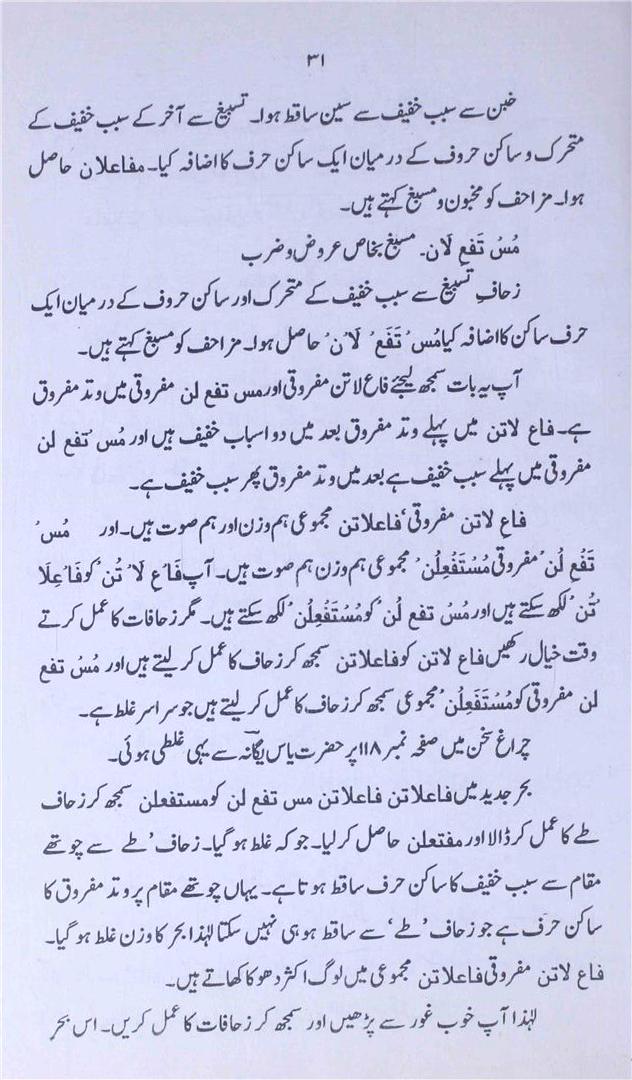 ۳۱
خبن سے سبب خفیف سے سین ساقط ہوا۔ تسبیغ سے آخر کے سبب خفیف کے
متحرک و ساکن حروف کے درمیان ایک ساکن حرف کا اضافہ کیا۔ مفاعلان حاصل
ہوا۔ مزاحف کو مخبون و مسبغ کہتے ہیں۔
مُس تَفعِ لَان۔ مسبغ بخاص عروض و ضرب
زحافِ تسبیغ سے سبب خفیف کے متحرک اور ساکن حروف کے درمیان ایک
حرف ساکن کا اضافہ کیا مُسْ تَفَعِ لَانْ حاصل ہوا۔ مزاحف کو مسبغ کہتے ہیں۔
آپ یہ بات سمجھ لیجئے فاع لاتن مفروقی اور مس تفع لن مفروقی میں وتد مفروق
ہے۔ فاع لاتن میں پہلے وتد مفروق بعد میں دو اسباب خفیف ہیں اور مُس تفع لن
مفروقی میں پہلے سبب خفیف ہے بعد میں وتد مفروق پھر سبب خفیف ہے۔
فاع لاتن مفروقی، فاعلاتن مجموعی ہم وزن اور ہم صوت ہیں۔ اور مُسْ
تَفُعِ لُن مفروقی مُسْتَفْعِلُنْ مجموعی ہم وزن ہم صوت ہیں۔ آپ فَاعِ لَا تُنْ کو فَاعِلَا
تُنْ لکھ سکتے ہیں اور مُسْ تفع لُنْ کو مُسْتَفْعِلُنْ لکھ سکتے ہیں۔ مگر زحافات کا عمل کرتے
وقت خیال رکھیں فاع لاتن کو فاعلاتن سمجھ کر زحاف کا عمل کر لیتے ہیں اور مسُ تفع
لن مفروقی کو مُسْتَفْعِلُنْ مجموعی سمجھ کر زحاف کا عمل کر لیتے ہیں جو سراسر غلط ہے۔
چراغ سخن میں صفحہ نمبر ۱۱۸ پر حضرت یاس یگانہ سے یہی غلطی ہوئی۔
بحر جدید میں فاعلاتن فاعلاتن مس تفع لن کو مستفعلن سمجھ کر زحاف
طے کا عمل کر ڈالا اور مفتعلن حاصل کر لیا۔ جو کہ غلط ہو گیا۔ زحاف ’طے‘ سے چوتھے
مقام سے سبب خفیف کا ساکن حرف ساقط ہوتا ہے۔ یہاں چوتھے مقام پر وتد مفروق کا
ساکن حرف ہے جو زحاف ’طے‘ سے ساقط ہو ہی نہیں سکتا لہٰذا بحر کا وزن غلط ہو گیا۔
فاع لاتن مفروقی فاعلاتن مجموعی میں لوگ اکثر دھوکا کھاتے ہیں۔
لہٰذا آپ خوب غور سے پڑھیں اور سمجھ کر زحافات کا عمل کریں۔ اس بحر